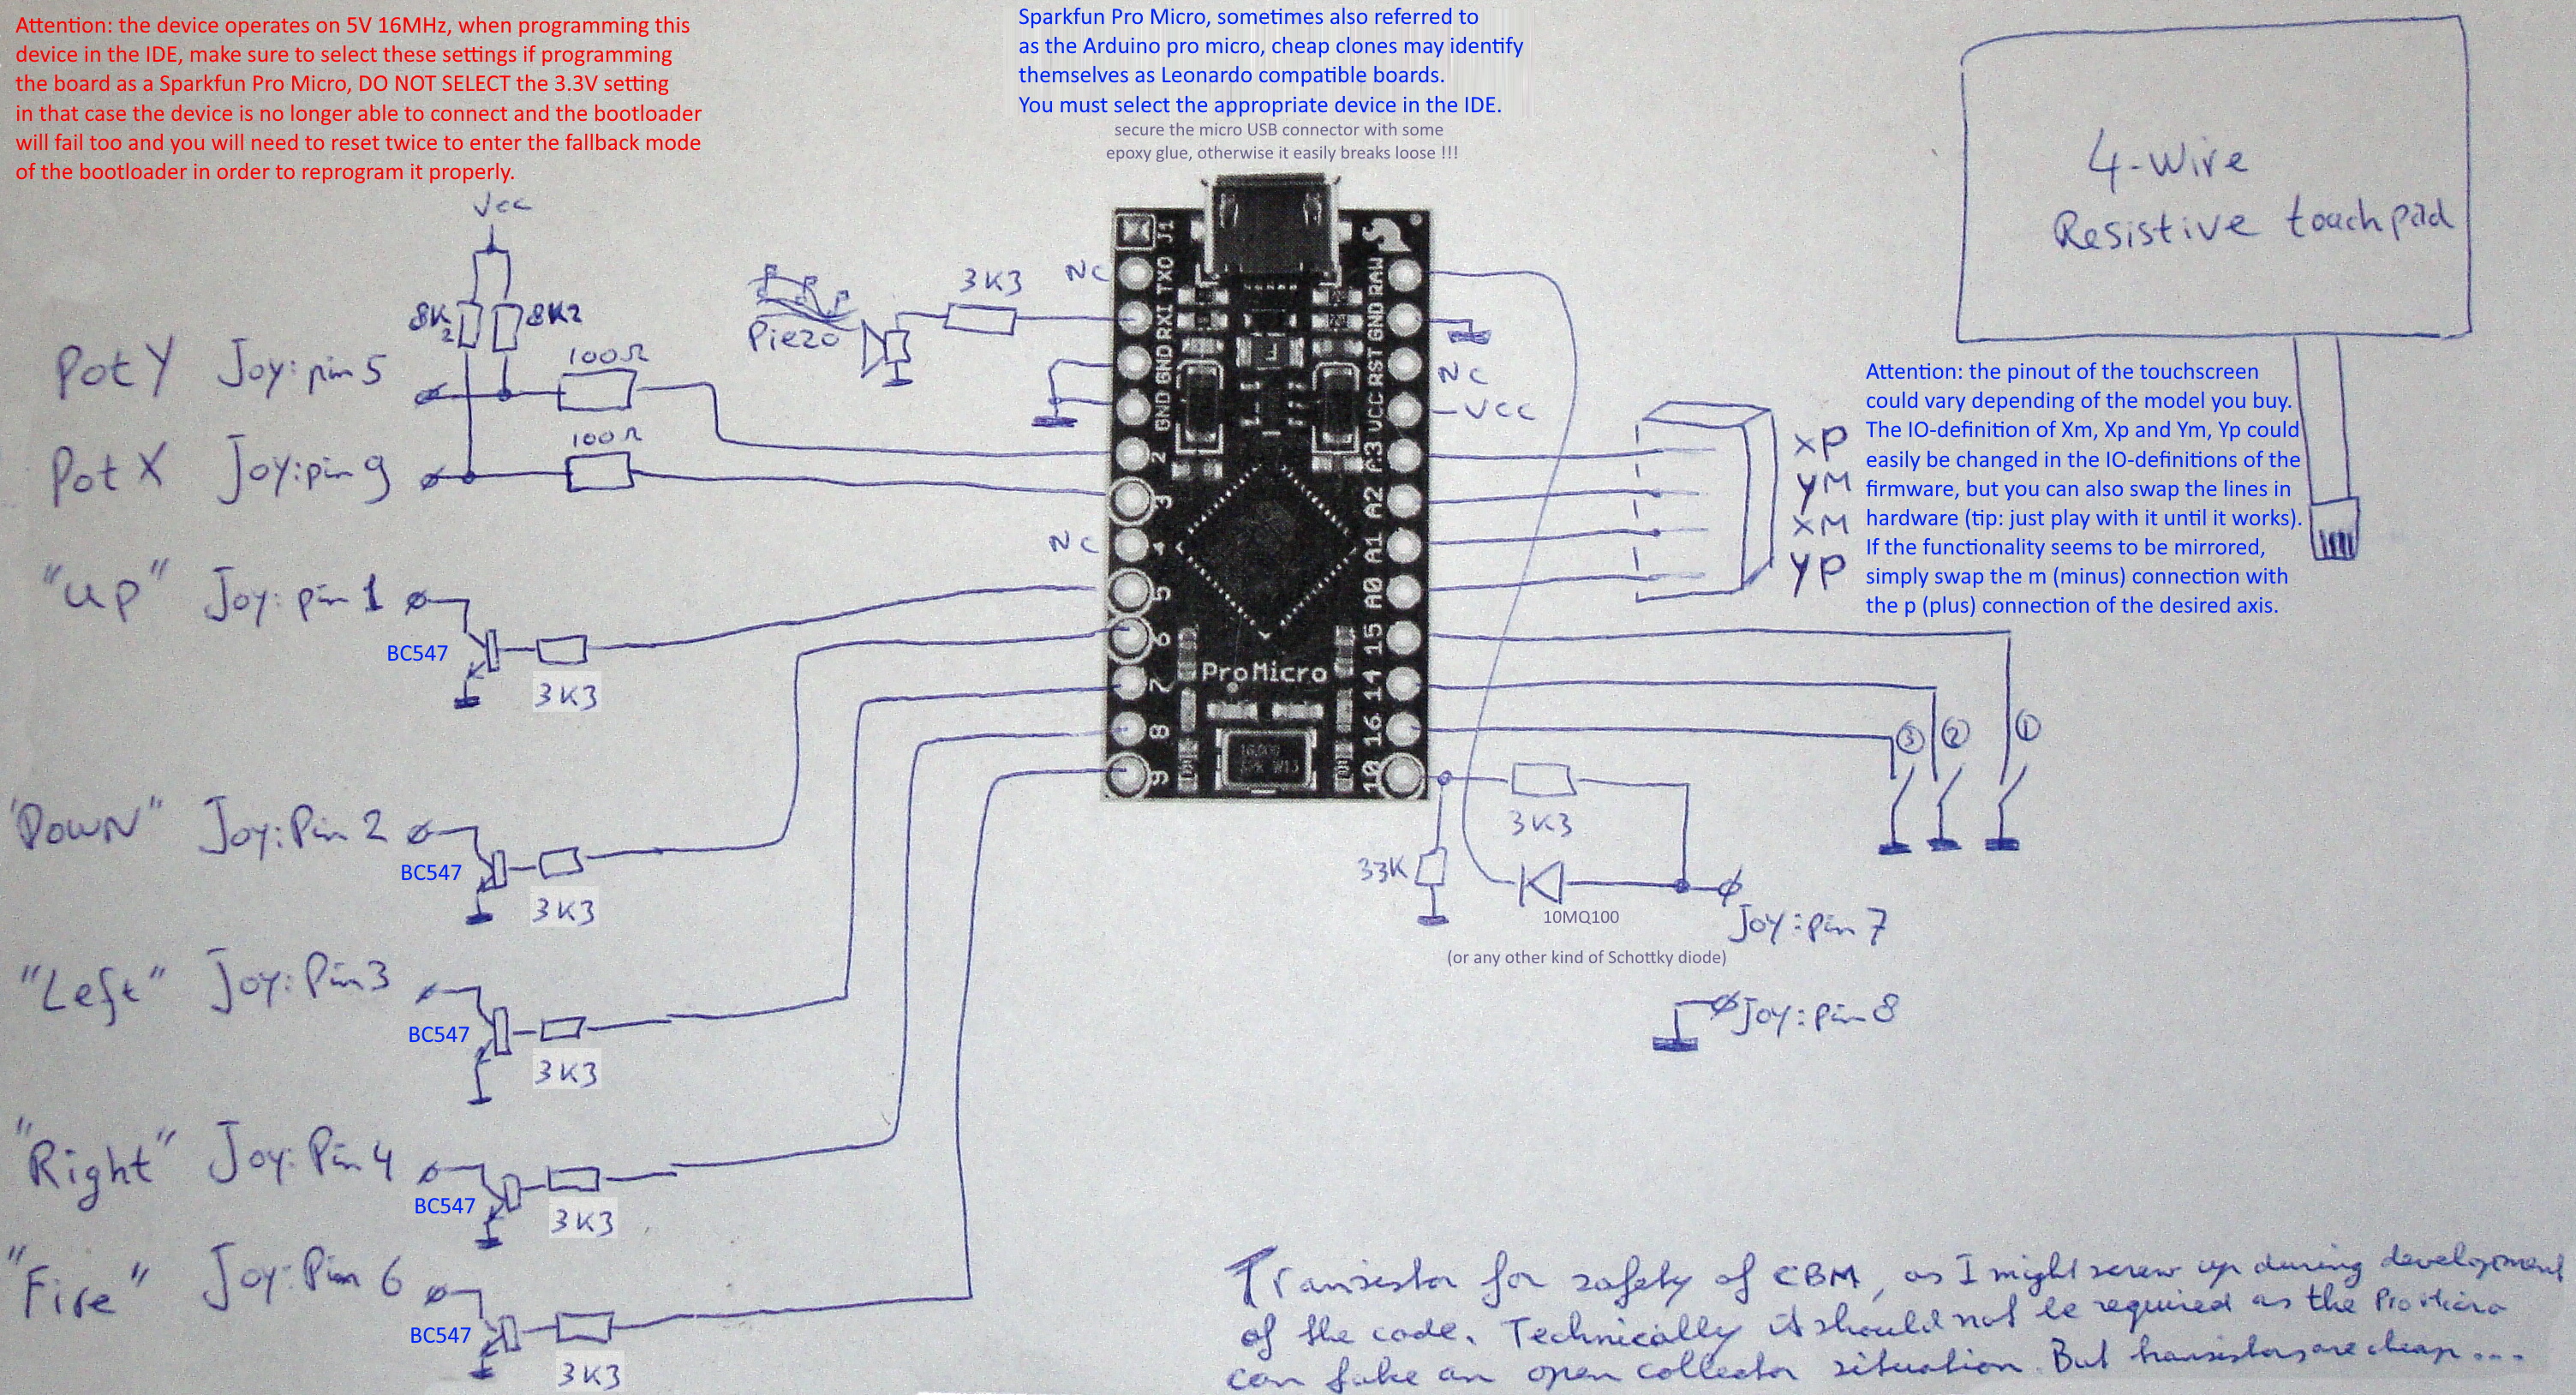 Attention: the device operates on 5V 16MHz, when programming this
device in the IDE, make sure to select these settings if programming
the board as a Sparkfun Pro Micro, DO NOT SELECT the 3.3V setting
in that case the device is no longer able to connect and the bootloader
will fail too and you will need to reset twice to enter the fallback mode
of the bootloader in order to reprogram it properly.
Sparkfun Pro Micro, sometimes also referred to
as the Arduino pro micro, cheap clones may identify
themselves as Leonardo compatible boards.
You must select the appropriate device in the IDE.
secure the micro USB connector with some
epoxy glue, otherwise it easily breaks loose !!!
4-Wire
Resistive touchpad
Vcc
8K2
8K2
Piezo
3K3
NC
Pot Y Joy: pin 5
100Ω
Pot X Joy: pin 9
100Ω
NC
"up" Joy: pin 1
BC547
3K3
"Down" Joy: Pin 2
BC547
3K3
"Left" Joy: Pin 3
BC547
3K3
"Right" Joy: Pin 4
BC547
3K3
"Fire" Joy: Pin 6
BC547
3K3
J1
TXO
RXI
GND
GND
2
3
4
5
6
7
8
9
RAW
GND
RST
VCC
A3
A2
A1
A0
15
14
16
10
ProMicro
NC
-VCC
XP
YM
XM
YP
Attention: the pinout of the touchscreen
could vary depending of the model you buy.
The IO-definition of Xm, Xp and Ym, Yp could
easily be changed in the IO-definitions of the
firmware, but you can also swap the lines in
hardware (tip: just play with it until it works).
If the functionality seems to be mirrored,
simply swap the m (minus) connection with
the p (plus) connection of the desired axis.
③ ② ①
3K3
33K
10MQ100
(or any other kind of Schottky diode)
Joy: pin 7
Joy: pin 8
Transistor for safety of CBM, as I might screw up during development
of the code. Technically it should not be required as the ProMicro
can fake an open collector situation. But transistors are cheap...